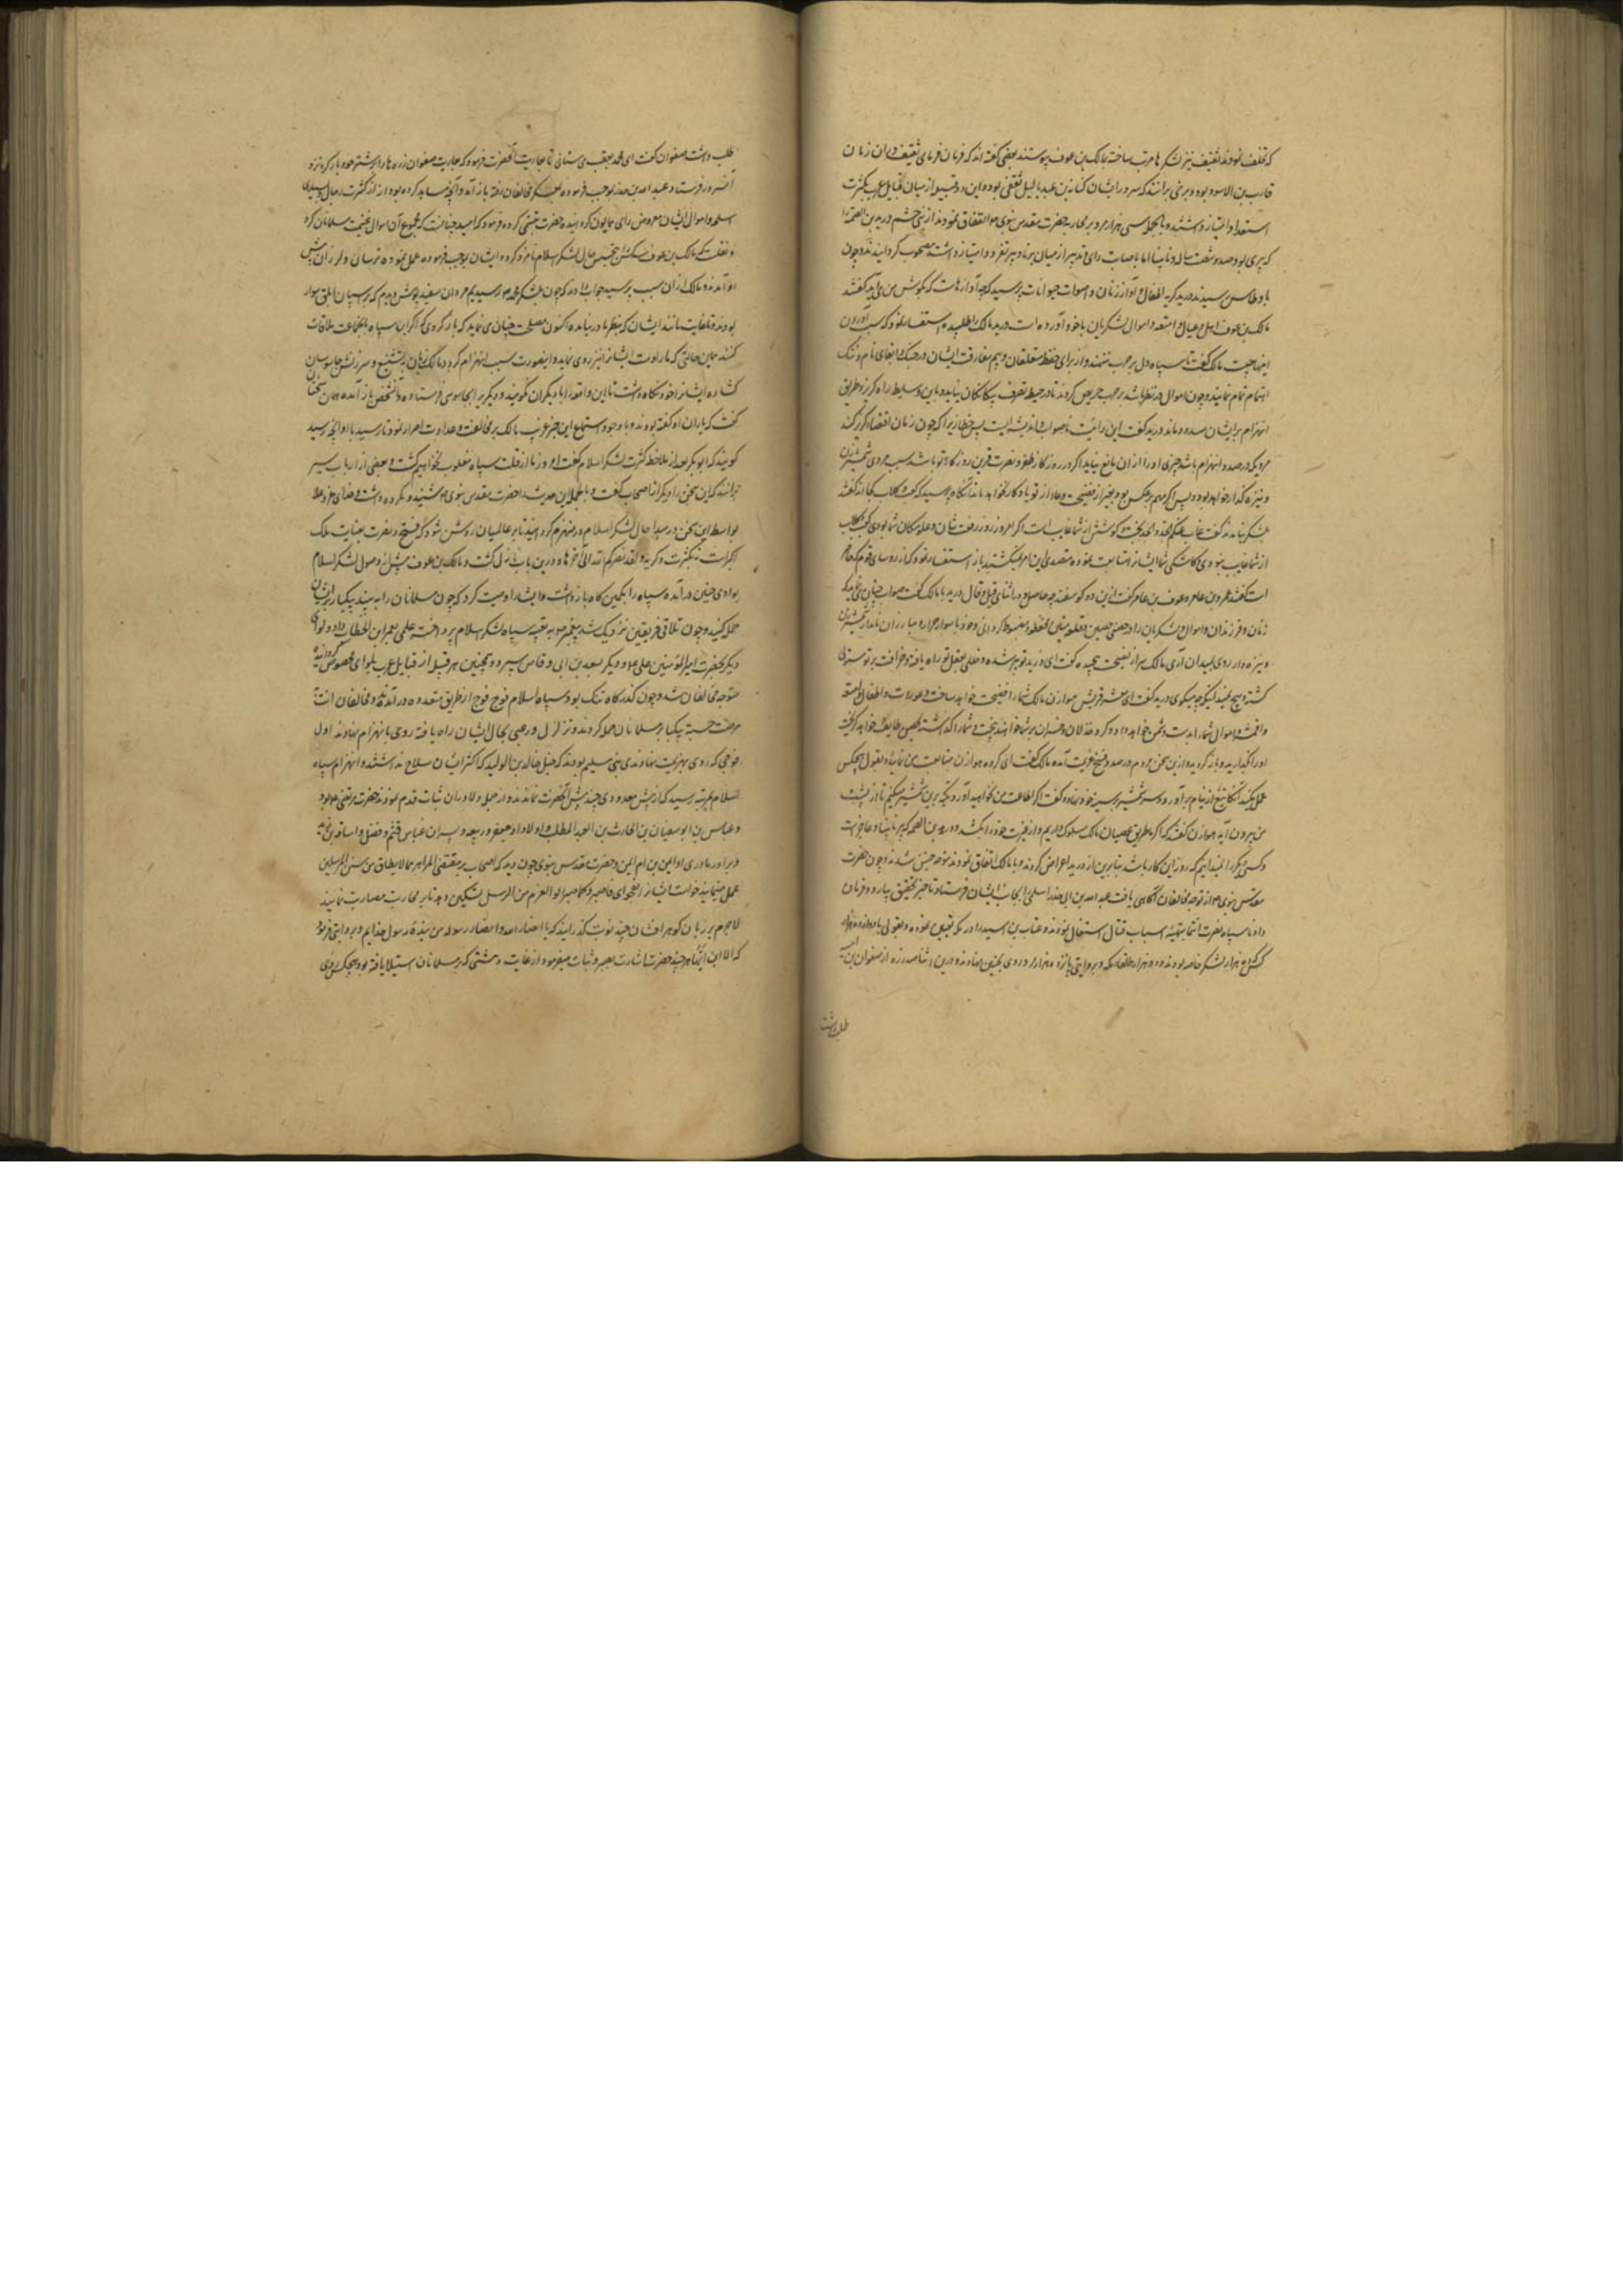 که تخلف نمودند ثقیف نیز لشکرها مرتب ساخته بمالک بن عوف پیوستند بعضی گفته اند که فرمان فرمای ثقیف در آن زمان
قارب بن الاسود بود و برخی برانند که سرور ایشان کنانه بن عبد یالیل ثقفی بود و این دو قبیله از میان قبایل عرب بکثرت
استعداد امتیاز داشتند و بالجمله سی هزار مرد بر محاربه حضرت مقدس نبوی اتفاق نمودند از بنی جشم درید بن الصمه
که پیری بود صد و شصت ساله و نابینا اما باصابت رای و تدبیر از میان برنا و پیر تفرد و امتیاز داشت مصحوب گردانیدند و چون
باوطاس رسیدند درید گریه اطفال و آواز زنان و اصوات حیوانات پرسید که چه آوازهاست که بگوش من می آید گفتند
مالک بن عوف اهل و عیال و امتعه و اموال لشکریان با خود آورده است درید مالک را طلبیده استفسار نمود که سبب آوردن
اینها چیست مالک گفت تا سپاه دل بر حرب نهند و از برای حفظ متعلقان و بیم مفارقت ایشان در جنک و ابقای نام و ننک
اهتمام تمام نمایند و چون اموال در نظر باشد بر حرب حریص گردند تا در حیطه تصرف بیگانگان نیاید و باین وسایط راه گریز و طریق
انهزام بر ایشان مسدود ماند درید گفت این رائیست ناصواب و اندیشه ایست پر خطا زیرا که چون زمان اقتضاء گریز کند
مردیکه در صدد انهزام باشد چیزی او را از آن مانع نیاید اگر در روز کار ظفر و نصرت قرین روزگار تو باشد بسبب مردی شمشیر زن
و نیزه گذار خواهد بود و پس اگر مهم برعکس بود بغیر از فضیحت
بلشکر نامدند گفت غایب
از شما غایب نبودی کاشکی شما ایشانرا متابعت نموده متصدی این امر نمیگشتید باز استفسار نمود که از روسای قوم که حاضر
است گفتند عمرو بن عامر و عوف بن عامر گفت ازین دو گوسفند چه حاصل و در اثنای قیل و قال درید با مالک گفت صواب چنان می نماید که
زنان و فرزندان و اموال لشکریان را در حصنی حصین و قلعه متین محفوظ و مضبوط گردانی و خود با سوار جرار و مبارزان نامدار شمشیر زن
و نیزه دار روی بمیدان آری مالک سر از نصیحت پیچیده گفت ای درید تو پیر شده و خللی بعقل تو راه یافته و خرافت بر تو مستولی
گشته درید گفت ای معشر هوازن مالک شما را فضیحت خواهد ساخت و عورات و اطفال و امتعه
و اقمشه و اموال شما را بدست دشمن خواهد داد و شما را گذاشته بحصن طایف خواهد گریخت
او را بگذارید و باز گردید و ازین سخن مردم در صدد فسخ عزیمت آمده مالک گفت ای گروه هوازن متابعت من نمائید و بقول هیچکس
عمل مکنید آنگاه تیغ از نیام برآورد و سر شمشیر بر سینه خود نهاده گفت که اگر اطاعت من نخواهید آورد تکیه برین شمشیر میکنم تا از پشت
من بیرون آید هوازن گفتند که اگر ما طریق عصیان مالک سلوک داریم او از غیرت خود را بکشد و درید بن الصمه که پیر نابینا و عاجز است
و کسی دیگر را نمیدانیم که در این کار باشد بنابرین از درید اعراض کردند و با مالک اتفاق نمودند متوجه حنین شدند و چون حضرت
مقدس نبوی از توجه مخالفان آگاهی یافت عبد الله بن ابی حدرد اسلمی را بجانب ایشان فرستاد تا خبر تحقیق بیارد و فرمان
داد تا سپاه نصرت انتما بتهیه اسباب قتال اشتغال نمودند و عتاب بن اسید را در مکه تعیین نموده و بقولی با دوازده هزار
کس ده هزار لشکر خاصه بودند و دو هزار طلقاء مکه و بروایتی پانزده هزار مرد روی بحنین نهادند و درین اثنا صد زره از صفوان بن امیه
طلب داشت
طلب داشت صفوان گفت ای محمد بغصب می ستانی یا بعاریت آنحضرت فرمود که بعاریت صفوان زره ها را بر شتر خود بار کرده نزد
آنسرور فرستاد عبد الله بن حدرد بموجب فرموده بمعسکر مخالفان رفته باز آمد و آنچه مشاهده کرده بود از کثرت رجال و بسیاری
اسلحه و اموال ایشان معروض رای همایون گردانید حضرت تبسمی کرده فرمود که امید چنانست که مجموع آن اموال غنیمت مسلمانان گردد
و نقلست که مالک بن عوف سه کس بتجسس حال لشکر اسلام نامزد کرد و ایشان بموجب فرموده عمل نموده ترسان و لرزان پیش
او آمدند و مالک از آن سبب پرسید جواب دادند که چون بلشکر محمد رسیدیم مردان سفید پوش دیدیم که بر اسپان ابلق سوار
بودند و تا غایت مانند ایشان بنظر ما در نیامده اکنون مصلحت چنان می نماید که باز گردی که اگر این سپاه با آنجماعت ملاقات
کنند همین حالتی که ما را دست ایشانرا نیز روی نماید و اینصورت سبب انهزام گردد مالک زبان بتشنیع و سرزنش جاسوسان
گشاده ایشانرا خود نگاه داشت تا این واقعه را با دیگران نگویند و دیگریرا بجاسوسی فرستاده آنشخص باز آمده همان سخنان
گفت که یاران او گفته بودند و با وجود استماع این خبر غریب مالک بر مخالفت و عداوت اصرار نمود تا رسید باو آنچه رسید
گویند که ابوبکر بعد از ملاحظه کثرت لشکر اسلام گفت امروز ما از قلت سپاه مغلوب نخواهیم گشت و بعضی از ارباب سیر
برانند که این سخن را دیگری از اصحاب گفت و بالجمله این حدیث را حضرت مقدس نبوی شنیده مکروه داشت و خدای عز و علا
بواسطه این سخن در مبدا حال لشکر اسلام را منهزم گردانید تا بر عالمیان روشن شود که فتح و نصرت بعنایت ملک
اکبر است نه بکثرت و کریمه لقد نصرکم الله الی آخرها درین باب نازل گشت و مالک بن عوف پیش از وصول لشکر اسلام
بوادی حنین در آمده سپاه را بکمین گاه بازداشت و ایشانرا وصیت کرد که چون مسلمانان را ببینید بیکبار بر ایشان
حمله کنید و چون تلاقی فریقین نزدیک شد پیغمبر بتعبیه سپاه لشکر اسلام پرداخته علمی بعمر ابن الخطاب داد و لوای
دیگر بحضرت امیر المومنین علی و دیگر بسعد بن ابی وقاص سپرد و همچنین هر قبیله از قبایل عرب بلوای مخصوص گردانیده
متوجه مخالفان شد و چون گذرگاه تنک بود سپاه اسلام فوج فوج از طریق متعدده در آمدند و مخالفان انتهاز
فرصت جسته بیکبار بر مسلمانان حمله کردند و تزلزل و رعبی بحال ایشان راه یافته روی بانهزام نهادند اول
فوجی که روی بهزیمت نهادند بنی سلیم بودند که خیل خالد بن الولید که اکثر ایشان سلاح نداشتند و انهزام سپاه
اسلام بمرتبه رسید که از پیش معدودی چند پیش آنحضرت نماندند و از جمله دلاوران ثبات قدم نمودند حضرت مرتضی علی بود
و عباس بن ابو سفیان بن الحارث بن العبد المطلب و اولاد او جعفر و ربیعه و پسران عباس قثم و فضل و اسامه بن زید
و برادر مادری او ایمن بن ام ایمن و حضرت مقدس نبوی چون دید که اصحاب بر مقتضی الفرار مما لا یطاق من سنن المرسلین
عمل مینمایند خواست ایشانرا بفحوای فاصبر کما صبر اولو العزم من الرسل تسکین دهد تا بر محاربت مصابرت نمایند
لاجرم بر زبان گوهر افشان چند نوبت گذرانید که یا انصار الله و انصار رسوله من بنده و رسول خدایم و بروایتی فرمود
که الا این ایها الناس هر چند حضرت اشارت بصبر و ثبات میفرمود از غایت دهشتی که بر مسلمانان استیلا یافته بود هیچکس روی